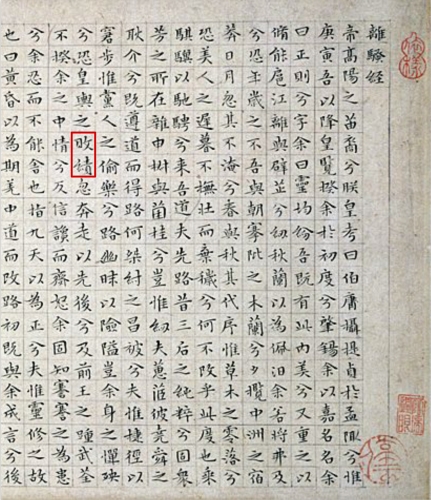 離騷經
帝高陽之苗裔兮朕皇考曰伯庸攝提貞於孟陬兮惟
庚寅吾以降皇覽揆余於初度兮肇錫余以嘉名名余
曰正則兮字余曰靈均紛吾既有此內美兮又重之以
脩能扈江離與辟芷兮紉秋蘭以為佩汨余若將弗及
兮恐年歲之不吾與朝搴阰之木蘭兮夕攬中洲之宿
莽日月忽其不淹兮春與秋其代序惟草木之零落兮
恐美人之遲暮不撫壯而棄穢兮何不改乎此度也乘
騏驥以馳騁兮來吾道夫先路昔三后之純粹兮固衆
芳之所在雜申椒與菌桂兮豈惟紉夫蕙茝彼堯舜之
耿介兮既遵道而得路何桀紂之昌被兮夫惟捷徑以
窘步惟黨人之偷樂兮路幽昧以險隘豈余身之憚殃
兮恐皇輿之敗績忽奔走以先後兮及前王之踵武荃
不揆余之中情兮反信讒而齊怒余固知謇謇之為患
兮余忍而不能舍也指九天以為正兮夫惟靈脩之故
也曰黃昏以為期羌中道而改路初既與余成言兮後